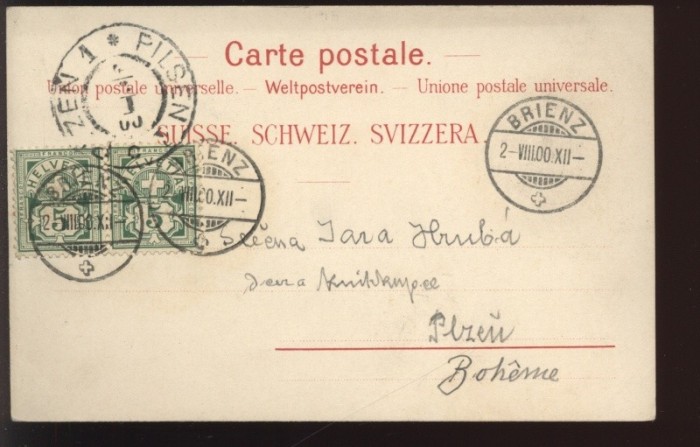 Carte postale.
Union postale universelle. — Weltpostverein. — Unione postale universale.
SUISSE. SCHWEIZ. SVIZZERA
PILSEN 1 * ZEŇ 1
BRIENZ
2-VIII.00.XII-
BRIENZ
VIII.00.XII-
2-VIII.00.XII
FRANCO
HELVETIA
5
FRANCO
HELVETIA
5
Slečna Jara Hrubá
dcera
Plzeň
Bohême